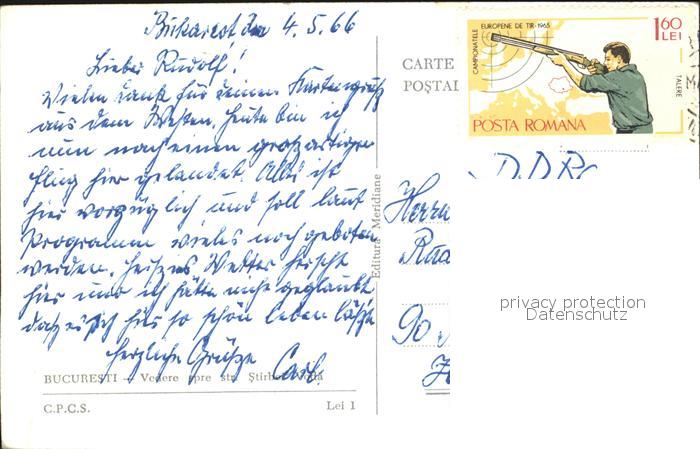 Bukarest, den 4.5.66
Lieber Rudolf!
Vielen Dank für deinen Kartengruß
aus dem Westen. Heute bin ich
nun nach einem großartigen
Flug hier gelandet. Alles ist
hier vorzüglich und soll laut
Programm vieles noch geboten
werden. Heißes Wetter herrscht
hier und ich hätte nie geglaubt
daß es sich hier so schön leben läßt
Herzliche Grüße
Carl.
BUCUREȘTI — Vedere spre str. Știrbei Vodă
C.P.C.S. Lei 1
Editura Meridiane
CARTE
POȘTAL
CAMPIONATELE EUROPENE DE TIR-1965
1 60
LEI
TALERE
POSTA ROMANA
DDR
Herrn
90
privacy protection
Datenschutz